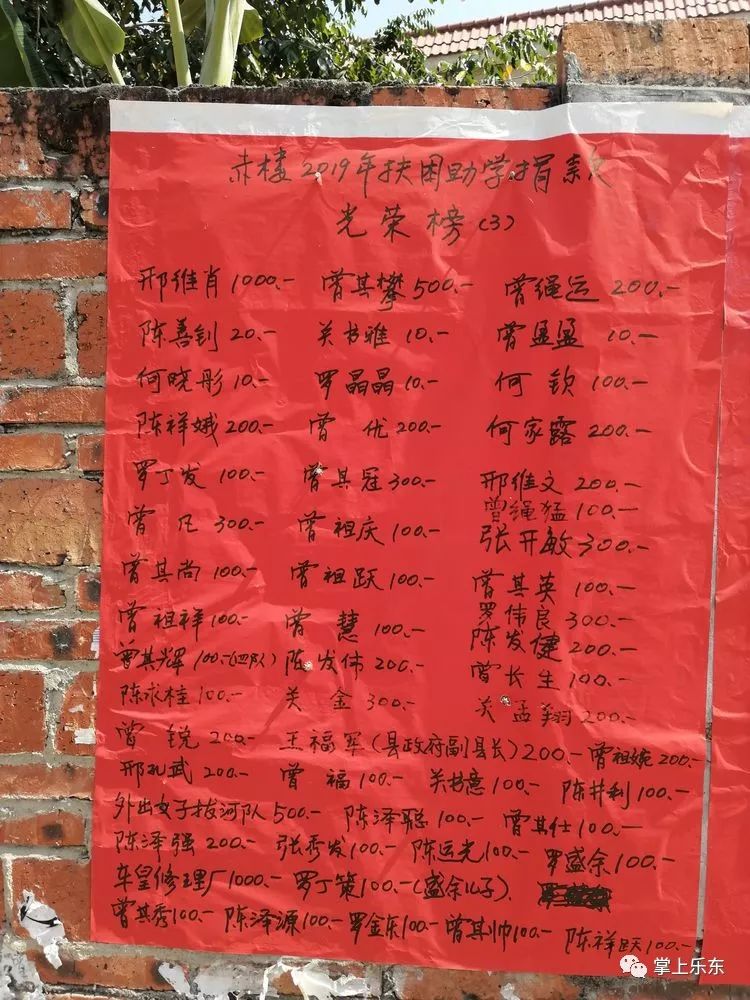 赤楼2019年扶困助学捐款
光荣榜(3)
邢维肖1000.- 曾其攀500.- 曾绳运200.-
陈善钊20.- 关书雅10.- 曾孟孟10.-
何晓彤10.- 罗晶晶10.- 何钦100.-
陈祥娥200.- 曾优200.- 何家露200.-
罗丁发100.- 曾其冠300.- 邢维文200.-
曾绳猛100.-
曾凡300.- 曾祖庆100.- 张开敏300.-
曾其尚100.- 曾祖跃100.- 曾其英100.-
罗伟良300.-
曾祖祥100.- 曾慧100.- 陈发健200.-
曾其辉100.-(四队) 陈发伟200.- 曾长生100.-
陈求桂100.- 关金300.- 关孟翔200.-
曾锐200.- 王福军(县政府副县长)200.- 曾祖婉200.-
邢孔武200.- 曾福100.- 关书意100.- 陈井利100.-
外出女子拔河队500.- 陈泽聪100.- 曾其仕100.-
陈泽强200.- 张秀发100.- 陈运光100.- 罗盛余100.-
车皇修理厂1000.- 罗丁策100.-(盛余儿子)
曾其秀100.- 陈泽源100.- 罗金东100.- 曾其帅100.- 陈祥跃100.-
掌上乐东